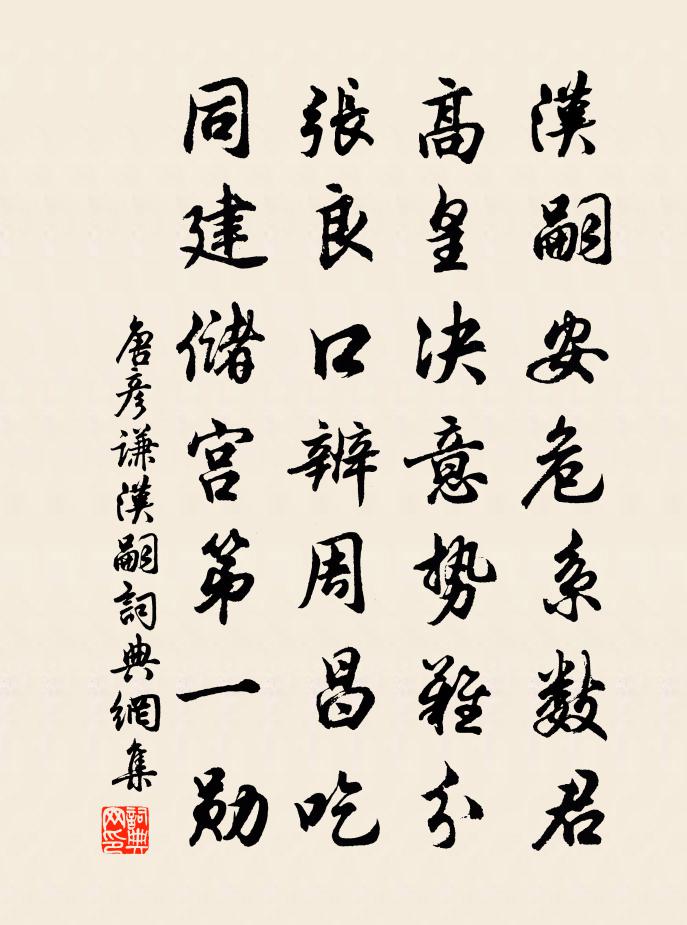 漢嗣安危系數君
高皇決意勢難分
張良口辨周昌吃
同建儲宮第一勛
唐彥謙漢嗣詞典網集
詞典网印